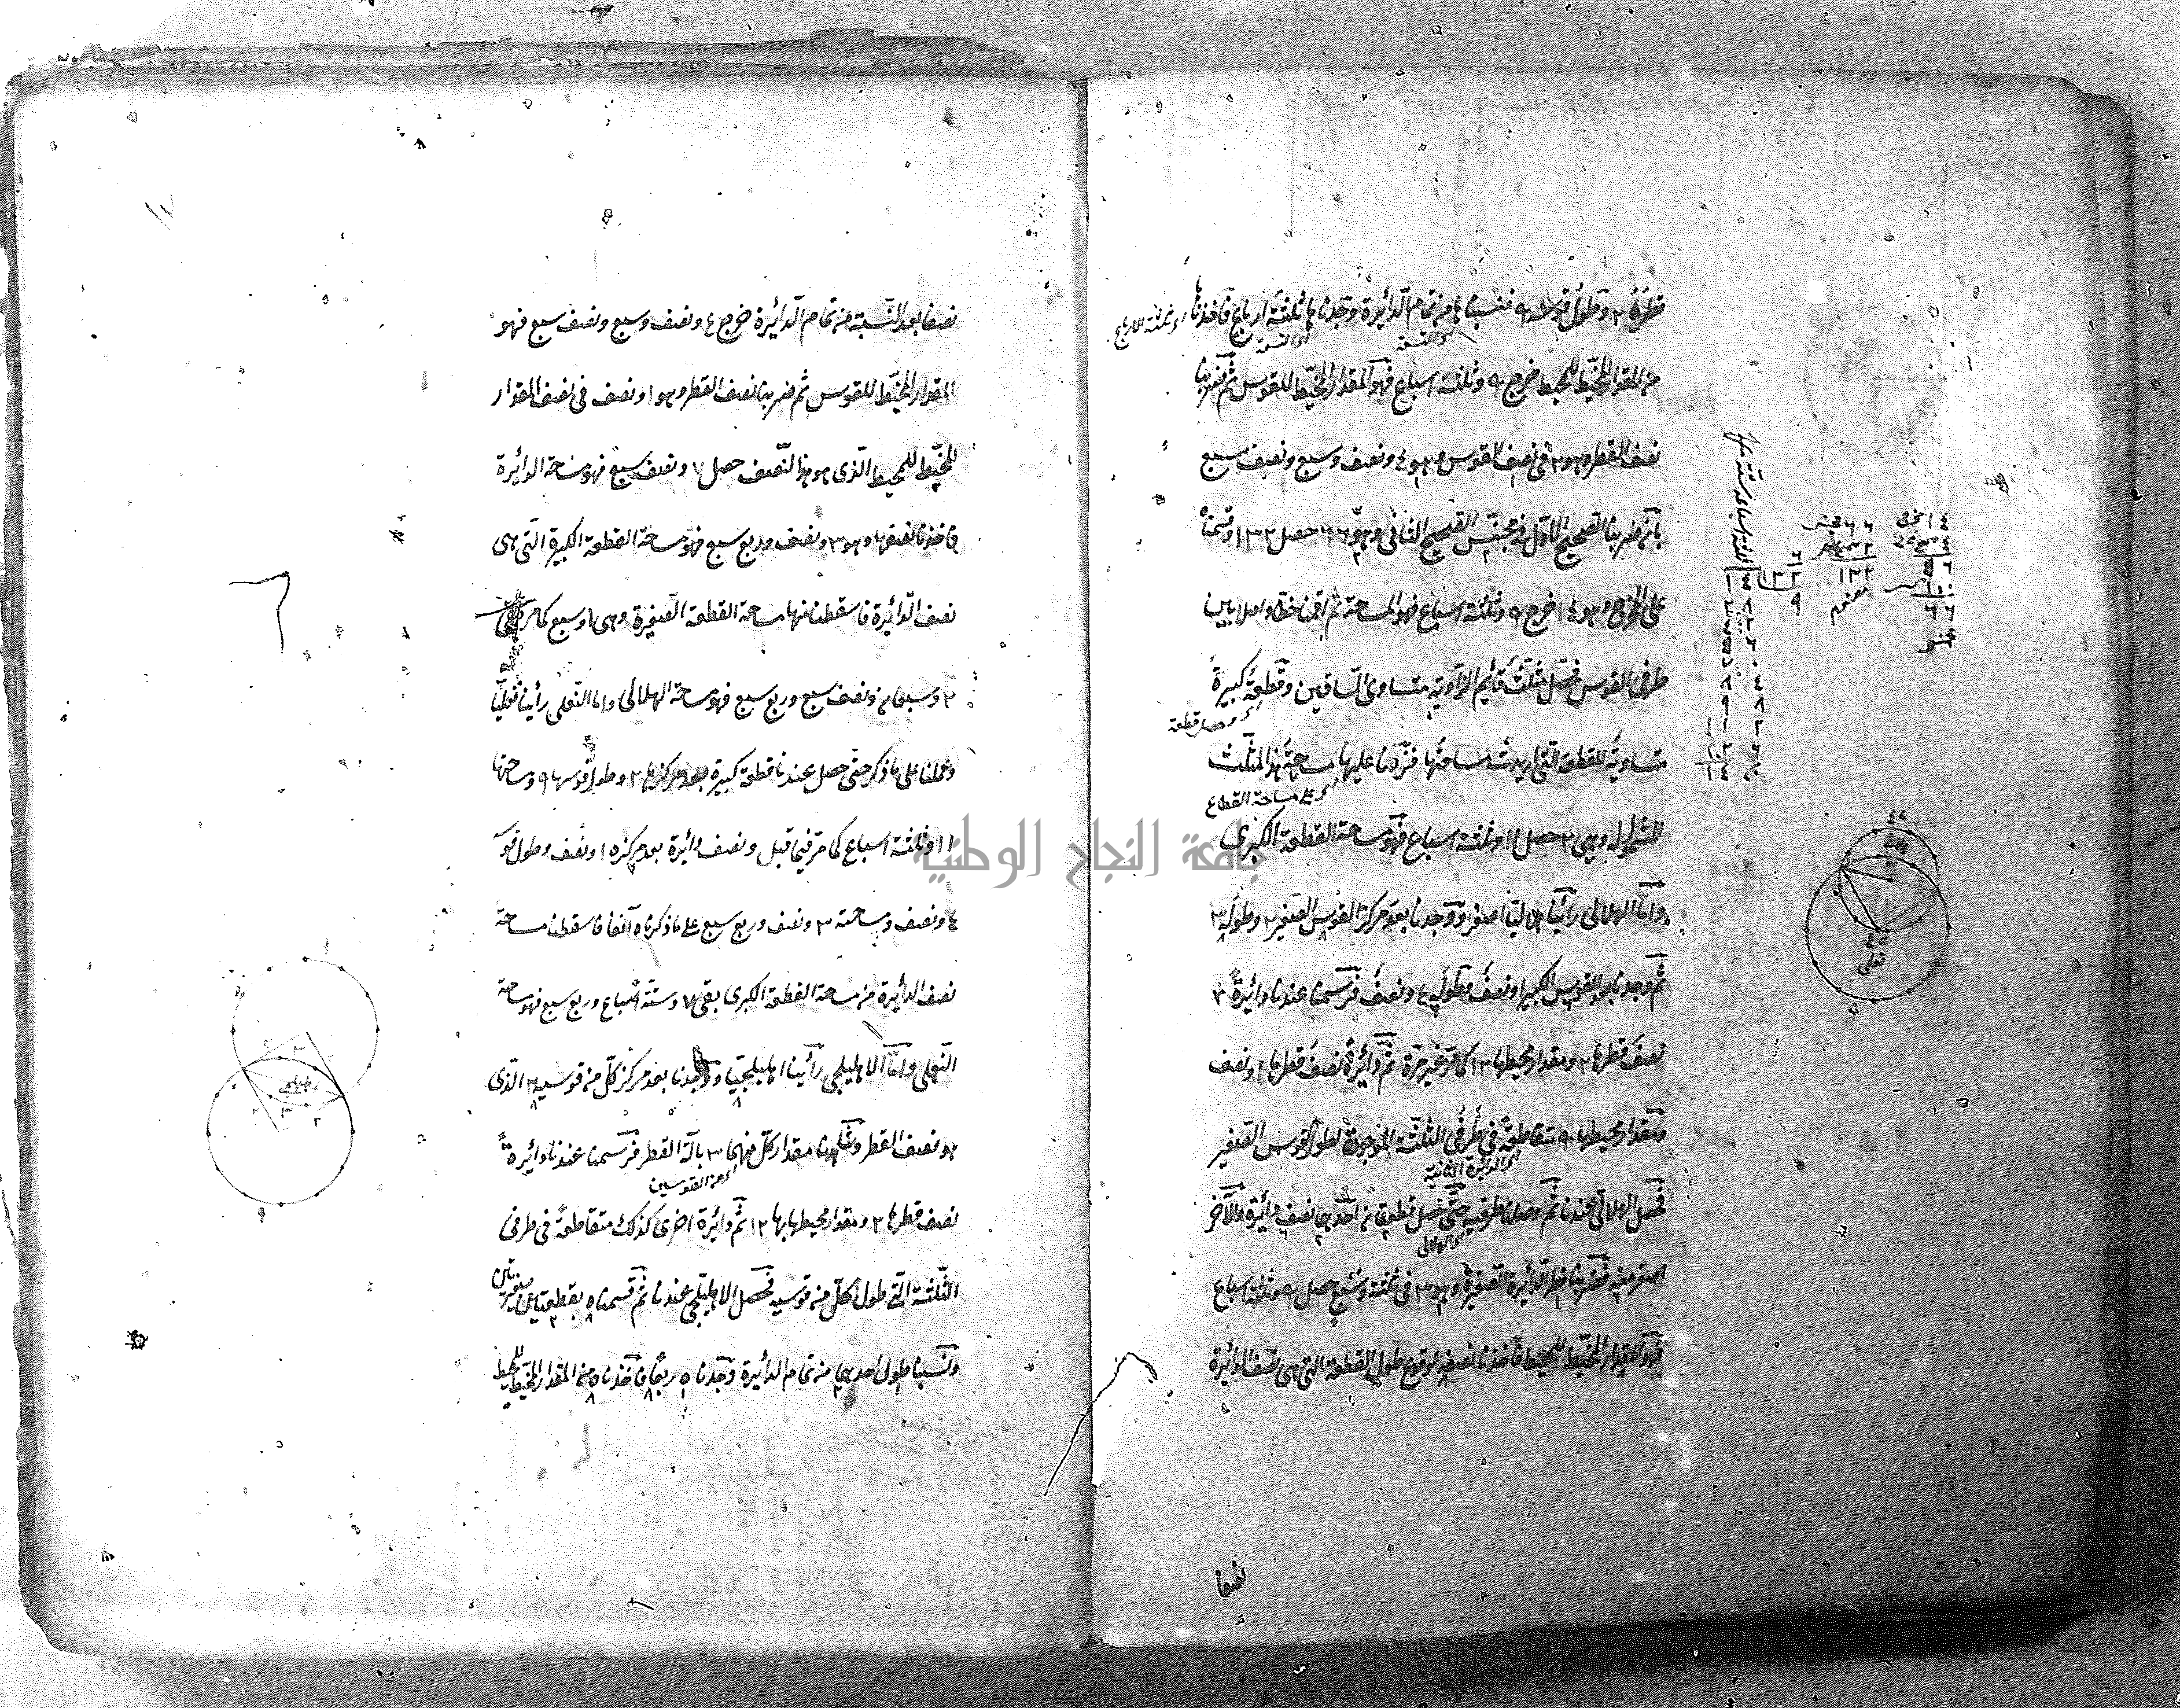 قطره ٢ وطول قوسه ٩ فنسبناها من تمام الدائرة وجدناها ثلثة ارباع فاخذنا
اى ثلثة الارباع
من المقدار المخيط للمحيط خرج ٩ وثلثة اسباع فهو المقدار المخيط للقوس ثم ضربنا
نصف القطر وهو ٢ فى نصف القوس وهو ٤ ونصف وسبع ونصف سبع
بان ضربنا الصحيح الاول فى مجنس الصحيح الثانى وهو ٦٦ حصل ١٣٢ وقسمناه
على المخرج وهو ١٤ خرج ٩ وثلثة اسباع فهو المساحة ثم اخذنا خطا واصلا بين
طرفى القوس فحصل مثلث قائم الزاوية متساوى الساقين وقطعة كبيرة
اى وحصل قطعة
متساوية للقطعة التى اريدت مساحتها فزدنا عليها مساحة هذا المثلث
اى على مساحة القطاع
للتساوى له وهى ٢ حصل ١١ وثلثة اسباع فهو مساحة القطعة الكبرى
واما الهلالى رأينا هلاليا اصغر ووجدنا بعد مركز القوس الصغير ٢ وطوله ٣
ثم وجدنا بعد القوس الكبير ١ ونصف وطوله ٤ ونصف فرسمنا عندنا دائرة
نصف قطرها ٢ ومقدار محيطها ١٢ كما مر غير مرة ثم دائرة نصف قطرها ١ ونصف
ومقدار محيطها ٩ متقاطعة فى طرفى الثلثة الموجودة لطول القوس الصغير
اى الدائرة الثانية
فحصل الهلالى عندنا ثم وصلنا طرفيه حتى حصل قطعتان احديهما نصف دائرة والآخر
اى الهلالى
اصغر منه فضربنا قطر الدائرة الصغيرة وهو ٣ فى ثلثة وسبع حصل ٩ وثلثة اسباع
فهو المقدار المخيط للمحيط فاخذنا نصفه لوقوع طول القطعة التى هى نصف الدائرة
نصفا
نصفا بعد النسبة من تمام الدائرة خرج ٤ ونصف وسبع ونصف سبع فهو
المقدار المخيط للقوس ثم ضربنا نصف القطر وهو ١ ونصف فى نصف المقدار
المخيط للمحيط الذى هو هذا النصف حصل ٧ ونصف سبع فهو مساحة الدائرة
فاخذنا نصفها وهو ٣ ونصف وربع سبع فهو مساحة القطعة الكبيرة التى هى
نصف الدائرة فاسقطنا منها مساحة القطعة الصغيرة وهى ١ وسبع كما مر
٢ وسبعان ونصف سبع وربع سبع فهو مساحة الهلالى واما النعلى رأينا نعليا
وعملنا على ما ذكر حتى حصل عندنا قطعة كبيرة بعد مركزها ٢ وطول قوسها ٩ ومساحتها
١١ وثلثة اسباع كما مر فيما قبل ونصف دائرة بعد مركزه ١ ونصف وطول قوسه
٤ ونصف ومساحته ٣ ونصف وربع سبع على ما ذكرناه آنفا فاسقطنا مساحة
نصف الدائرة من مساحة القطعة الكبرى بقى ٧ وستة اسباع وربع سبع فهو مساحة
النعلى واما الاهليلجى رأينا اهليلجيا ووجدنا بعد مركز كل من قوسيه ٢ الذى
هو نصف القطر ووجدنا مقدار كل منهما ٣ بآلة القطر فرسمنا عندنا دائرة
اى من القوسين
نصف قطرها ٢ ومقدار محيطها بها ١٢ ثم دائرة اخرى كذلك متقاطعة فى طرفى
الثلثة التى طول كل من قوسيه فحصل الاهليلجى عندنا ثم قسمناه بقطعتين صغيرتين
ونسبنا طول احديهما من تمام الدائرة وجدناه ربعا فاخذناه من المقدار المخيط للمحيط